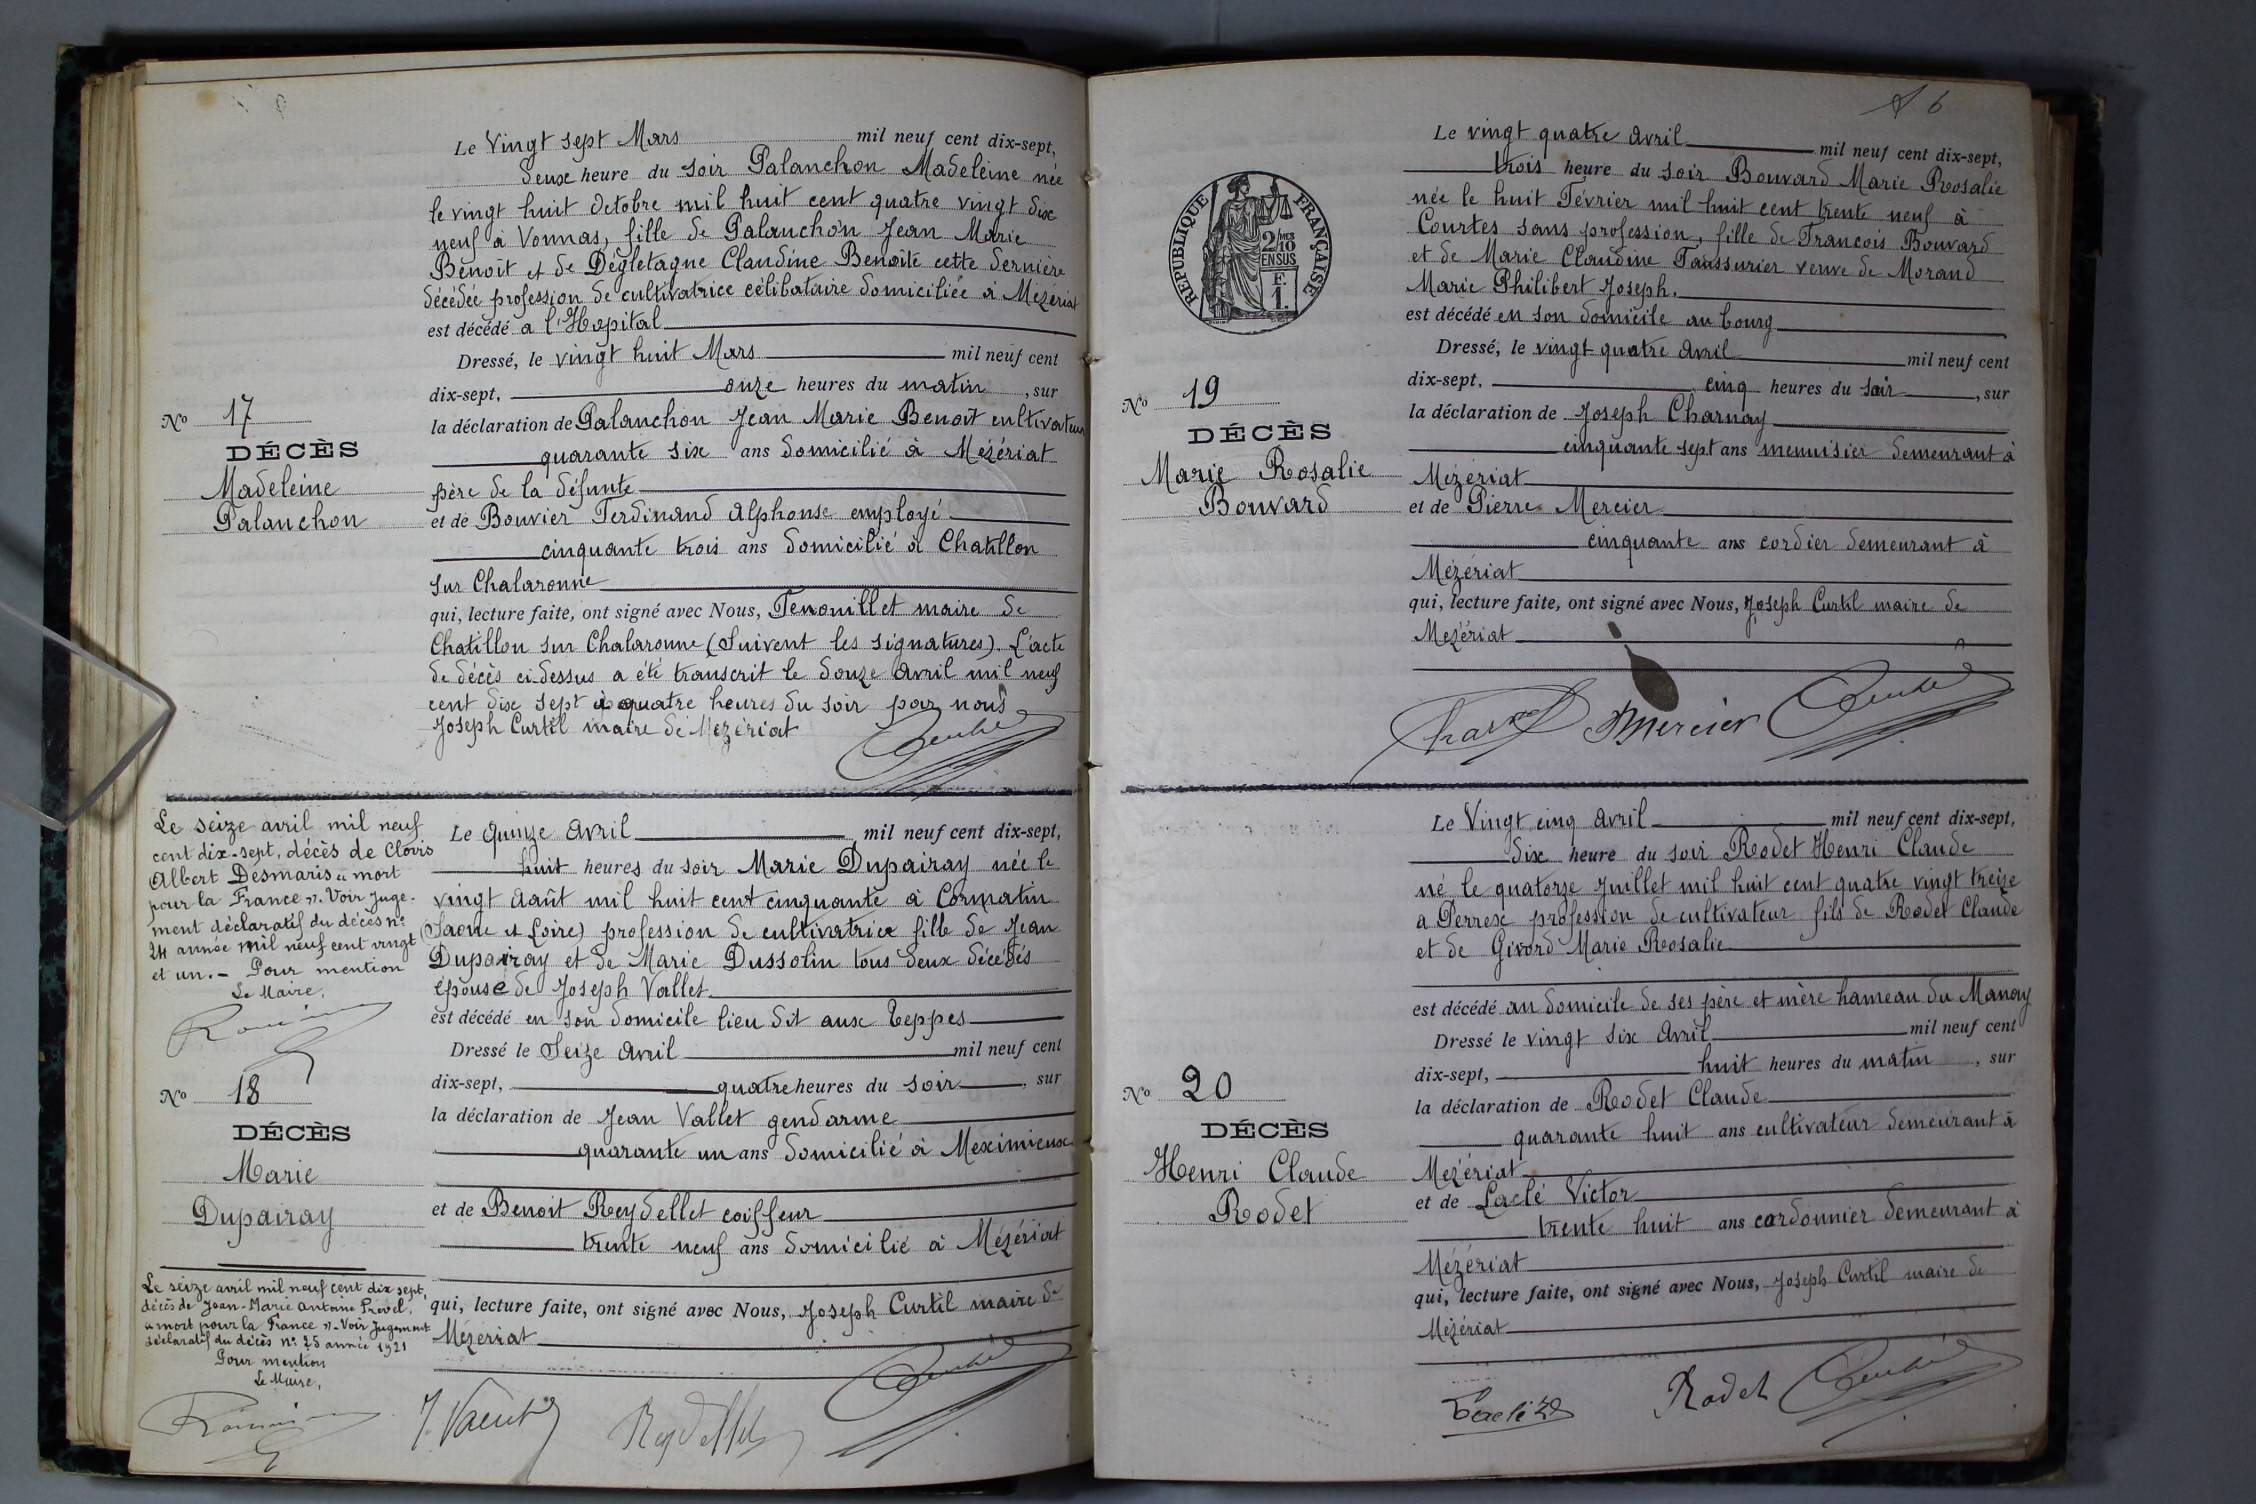 Le Vingt sept Mars mil neuf cent dix-sept,
deux heure du soir Palanchon Madeleine née
le vingt huit Octobre mil huit cent quatre vingt dix
neuf à Vonnas, fille de Palanchon Jean Marie
Benoît et de Dégletagne Claudine Benoîte cette dernière
décédée profession de cultivatrice célibataire domiciliée à Mézériat
est décédé a l'Hopital
Dressé, le vingt huit Mars mil neuf cent
dix-sept, onze heures du matin, sur
la déclaration de Palanchon Jean Marie Benoit cultivateur
quarante six ans domicilié à Mézériat
père de la défunte
et de Bouvier Ferdinand Alphonse employé
cinquante trois ans domicilié à Chatillon
sur Chalaronne
qui, lecture faite, ont signé avec Nous, Tenouillet maire de
Chatillon sur Chalaronne (Suivent les signatures). L'acte
de décès ci-dessus a été transcrit le douze avril mil neuf
cent dix sept à quatre heures du soir par nous
Joseph Curtil maire de Mézériat
No 17
DÉCÈS
Madeleine
Palanchon
Le seize avril mil neuf
cent dix-sept, décès de Clovis
Albert Desmaris « mort
pour la France ». Voir Juge-
ment déclaratif du décès no
24 année mil neuf cent vingt
et un. - Pour mention
Le Maire,
No 18
DÉCÈS
Marie
Dupairay
Le seize avril mil neuf cent dix sept,
décès de Jean-Marie Antoine Prevel,
« mort pour la France ». Voir Jugement
déclaratif du décès no 25 année 1921
Pour mention
Le Maire,
Le quinze avril mil neuf cent dix-sept,
huit heures du soir Marie Dupairay née le
vingt Août mil huit cent cinquante à Cormatin
(Saone et Loire) profession de cultivatrice fille de Jean
Dupairay et de Marie Dussolin tous deux décédés
épouse de Joseph Vallet
est décédé en son domicile lieu dit aux Teppes
Dressé le Seize avril mil neuf cent
dix-sept, quatre heures du soir, sur
la déclaration de Jean Vallet gendarme
quarante un ans domicilié à Meximieux
et de Benoit Reydellet coiffeur
trente neuf ans domicilié à Mézériat
qui, lecture faite, ont signé avec Nous, Joseph Curtil maire de
Mézériat
Reydellet
6
RÉPUBLIQUE FRANÇAISE
2/10 MES
EN SUS
F.
1.
Le vingt quatre avril mil neuf cent dix-sept,
trois heure du soir Bouvard Marie Rosalie
née le huit Février mil huit cent trente neuf à
Courtes sans profession, fille de Francois Bouvard
et de Marie Claudine Taussurier veuve de Morand
Marie Philibert Joseph.
est décédé en son domicile au bourg
Dressé, le vingt quatre avril mil neuf cent
dix-sept, cinq heures du soir, sur
la déclaration de Joseph Charnay
cinquante sept ans menuisier demeurant à
Mézériat
et de Pierre Mercier
cinquante ans cordier demeurant à
Mézériat
qui, lecture faite, ont signé avec Nous, Joseph Curtil maire de
Mézériat
Mercier
No 19
DÉCÈS
Marie Rosalie
Bouvard
Le Vingt cinq avril mil neuf cent dix-sept,
dix heure du soir Rodet Henri Claude
né le quatorze Juillet mil huit cent quatre vingt treize
a Perrex profession de cultivateur fils de Rodet Claude
et de Givord Marie Rosalie
est décédé au domicile de ses père et mère hameau du Manay
Dressé le vingt six avril mil neuf cent
dix-sept, huit heures du matin, sur
la déclaration de Rodet Claude
quarante huit ans cultivateur demeurant à
Mézériat
et de Laclé Victor
trente huit ans cordonnier demeurant à
Mézériat
qui, lecture faite, ont signé avec Nous, Joseph Curtil maire de
Mézériat
Rodet
No 20
DÉCÈS
Henri Claude
Rodet